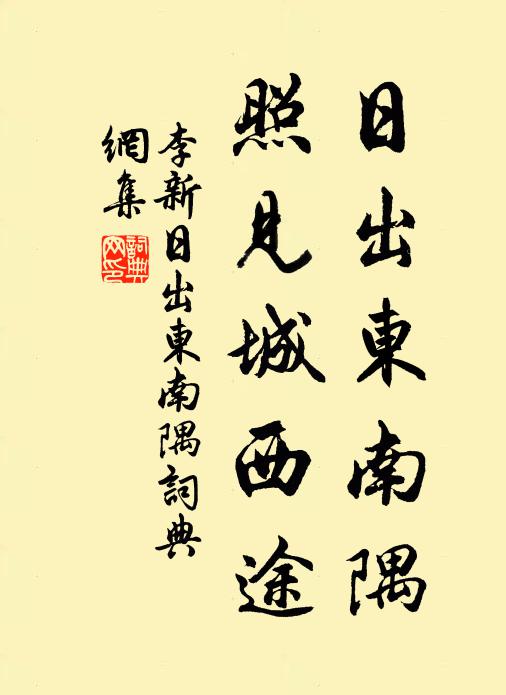 日出東南隅
照見城西途
李新日出東南隅詞典
網集
詞典
网印